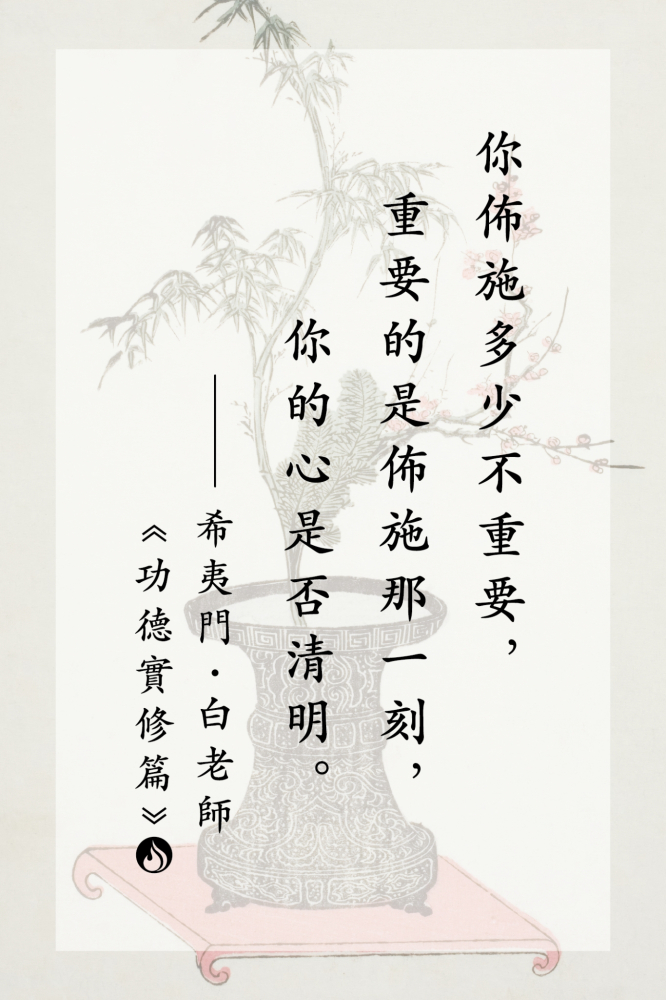 你佈施多少不重要，
重要的是佈施那一刻，
你的心是否清明。
——希夷門·白老師
《功德實修篇》